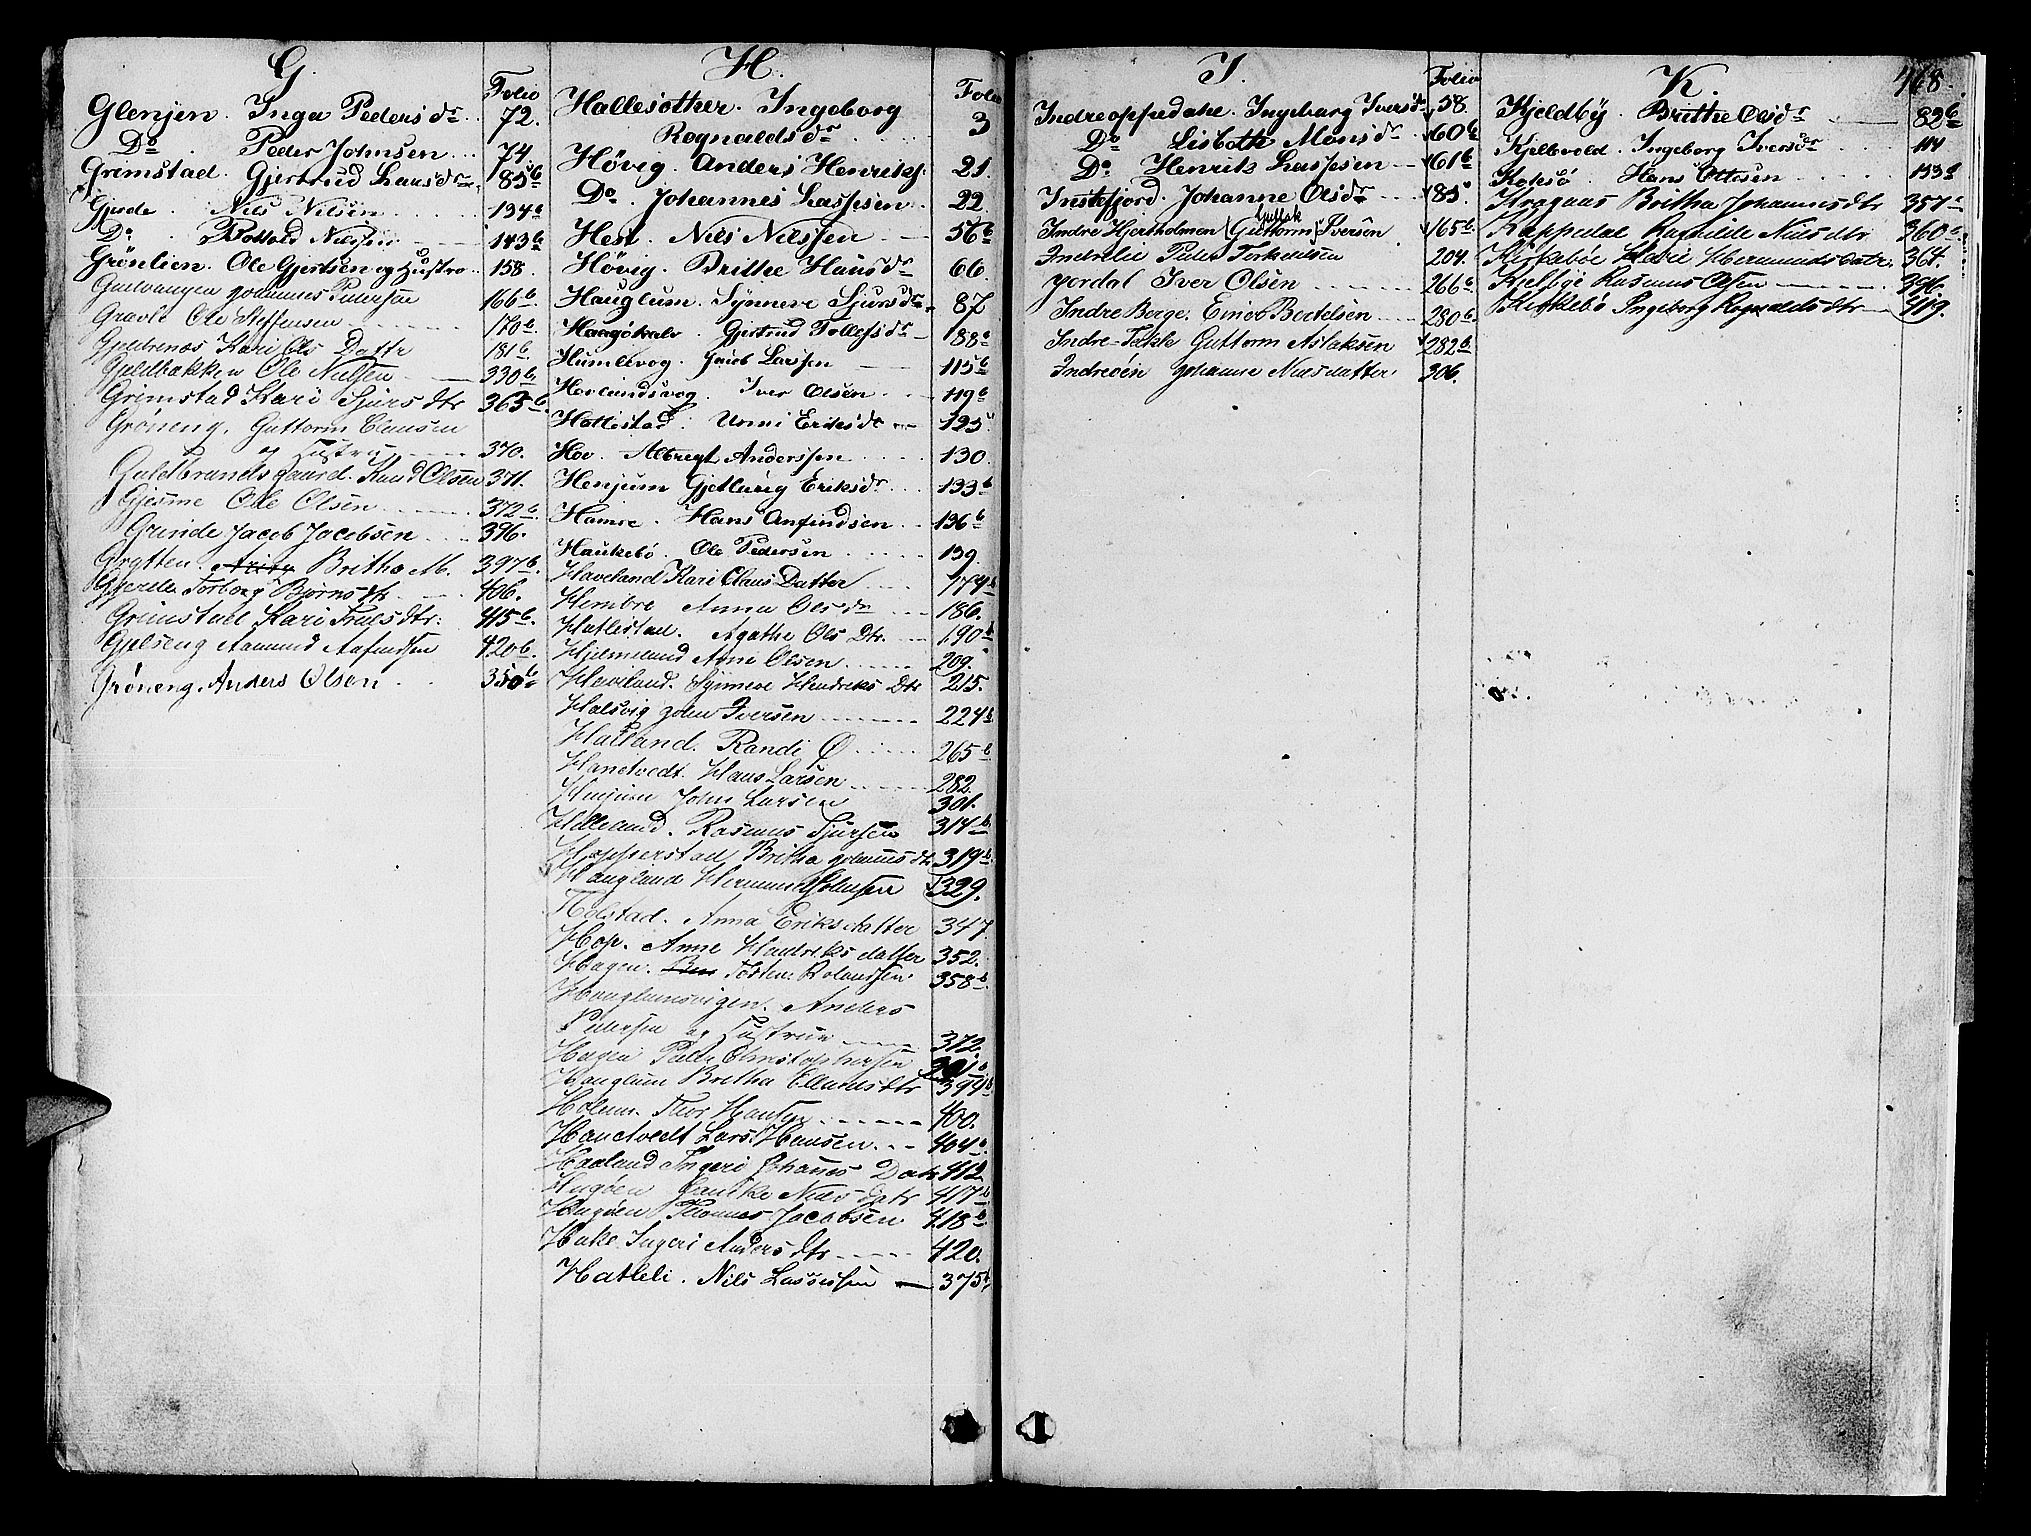 G.
Folio
Glenjen. Inga Pedersdr 72.
Do Peder Johnsen 74.
Grimstad. Gjertrud Larsdr 85b
Gjerde. Nils Nilsen 134b
Do Botlold Nilssen 143b
Grönlien. Ole Gjertsen og Hustro 158.
Gulvangen Johannes Pedersen 166b
Gravle Ole Steffensen 170b.
Gjeldrenæs Kari Ols Datter 181b
Gjeldbakken Ole Nilsen 330b.
Grimstad Kari Sjursdtr 363b.
Gröneng. Guttorm Clausen
og Hustru 370.
Guldbrandsgaard. Knud Olsen 371.
Gjesme Ole Olsen 372b.
Grinde Jacob Jacobsen 396.
Grytten. Britha M. 397b.
Gjerde Torborg Bjørnsdtr 406.
Grimstad Kari Truls dtr: 415b.
Gjelseng Aamund Anfindsen 420b.
Gröneng. Anders Olsen 350b
H.
Folio
Hallesother. Ingeborg
Rognaldsdr 3
Hövig. Anders Henriks. 21.
Do. Johannes Lassesen 22
Hest. Nils Nilssen 56b
Hövig. Brithe Hansdr 66.
Hauglum. Synneve Sjursdr 87
Haugökelv. Gjertrud Tollefsdr 88b
Humlevog. Jacob Larssen 115b
Hovlandsvog. Iver Olsen 119b
Hatlestad. Unni Eriksdr 125
Hov. Albregt Anderssen 130.
Henjum Gjetlaug Eriksdr 133b
Hamre. Hans Anfindsen 136b
Haukebö. Ole Pedersen 139.
Haveland Kari Claus Datter 174b
Hembre Anna Olsdr 186.
Hatlestad. Agathe Ols Dtr. 190b
Hjelmeland Arne Olsen 209.
Haveland. Synneve Hendriks Dtr 215.
Halsvig John Iversen 224b
Hatland. Randi Ø 265b
Handvedt. Hans Larsen 282.
Henjum John Larsen 301.
Helleland. Rasmus Sjursen 314b.
Hopperstad Britha Johannesdtr 319b.
Haugland Hermund Johnsen 329.
Holstad. Anna Eriksdatter 347
Hop. Anne Hendriksdatter 352.
Hagen. Torsten Rolandsen 358b.
Hauglumsvigen. Anders
Pedersen og Hustrue 372.
Hagen Peder Christophersen 391b
Hauglum Britha Ellendsdtr 394b
Holum. Thor Hansen 400.
Handvedt Lars Hansen 404b.
Haaland Ingeri Johannes Datr 412
Hugöen Gauthe Niels datr 417b
Hugöen Thomas Jacobsen 418b
Hake Ingeri Andersdtr 420.
Hatleli. Nils Lassesen 375b
I.
Folio
Indreoppedahl. Ingeborg Iversdr 58.
Do Lisbeth Monsdr 60b
Do Henrik Lassesen 61b
Instefjord. Johanne Olsdr 83.
Gullak
Indre Hjertholmen (Guttorm) Iversen 165b.
Indrelie Peder Torkelsen 204.
Jordal Iver Olsen 266b
Indre Berge. Einer Bertelsen 280b.
Indre-Takle Guttorm Aslaksen 282b
Indreöen Johanne Nielsdatter 306.
K.
468.
Kjeldby. Brithe Olsdr 82b
Kjelbvold. Ingeborg Iversdr 114
Koksö. Hans Ottesen 133b
Kragaas Britha Johannesdtr 351b
Kappedal Ranilde Nielsdtr 360b
Kirkebøe Kari Hermundsdatr. 364.
Kjelbye Rasmus Olsen 396.
Kirkebö Ingeborg Rognaldsdtr 419.